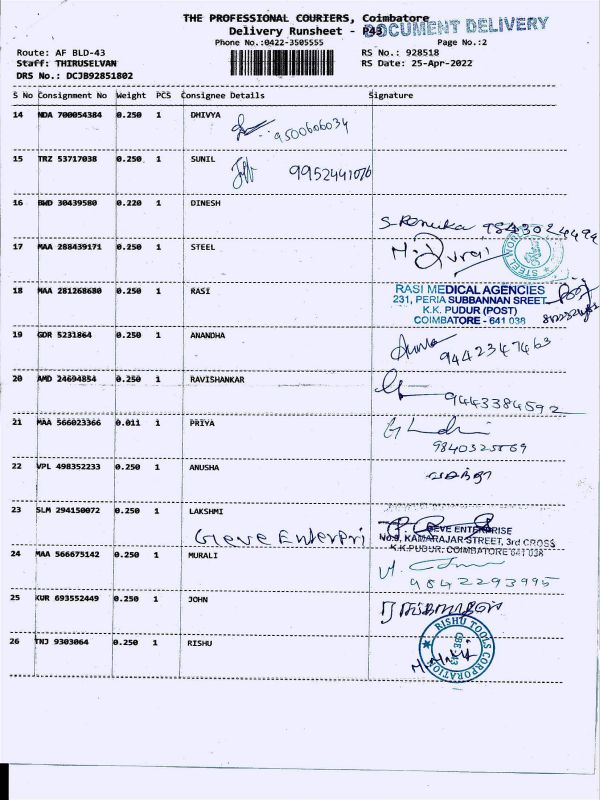 THE PROFESSIONAL COURIERS, Coimbatore
Delivery Runsheet - P43
DOCUMENT DELIVERY
Phone No.:0422-3505555
Page No.:2
Route: AF BLD-43
RS No.: 928518
Staff: THIRUSELVAN
RS Date: 25-Apr-2022
DRS No.: DCJB92851802
S No Consignment No Weight PCS Consignee Details Signature
14 NDA 700054384 0.250 1 DHIVYA
9500606034
15 TRZ 53717038 0.250 1 SUNIL
9952441076
16 BWD 30439580 0.220 1 DINESH
S-Renuka 9843024494
17 MAA 288439171 0.250 1 STEEL
M. Durai
STEEL WORK
18 MAA 281268680 0.250 1 RASI
RASI MEDICAL AGENCIES
231, PERIA SUBBANNAN SREET
K.K. PUDUR (POST)
COIMBATORE - 641 038
19 GDR 5231864 0.250 1 ANANDHA
9442347463
20 AMD 24694854 0.250 1 RAVISHANKAR
9443384592
21 MAA 566023366 0.011 1 PRIYA
9840325569
22 VPL 498352233 0.250 1 ANUSHA
வசந்தா
23 SLM 294150072 0.250 1 LAKSHMI
Gieve Enterpri
GEVE ENTERPRISE
No.9, KAMARAJAR STREET, 3rd CROSS
K.K.PUDUR, COIMBATORE 641 038
24 MAA 566675142 0.250 1 MURALI
9842293995
25 KUR 693552449 0.250 1 JOHN
26 TNJ 9303064 0.250 1 RISHU
RISHU TOOLS CORPORATION
CBE